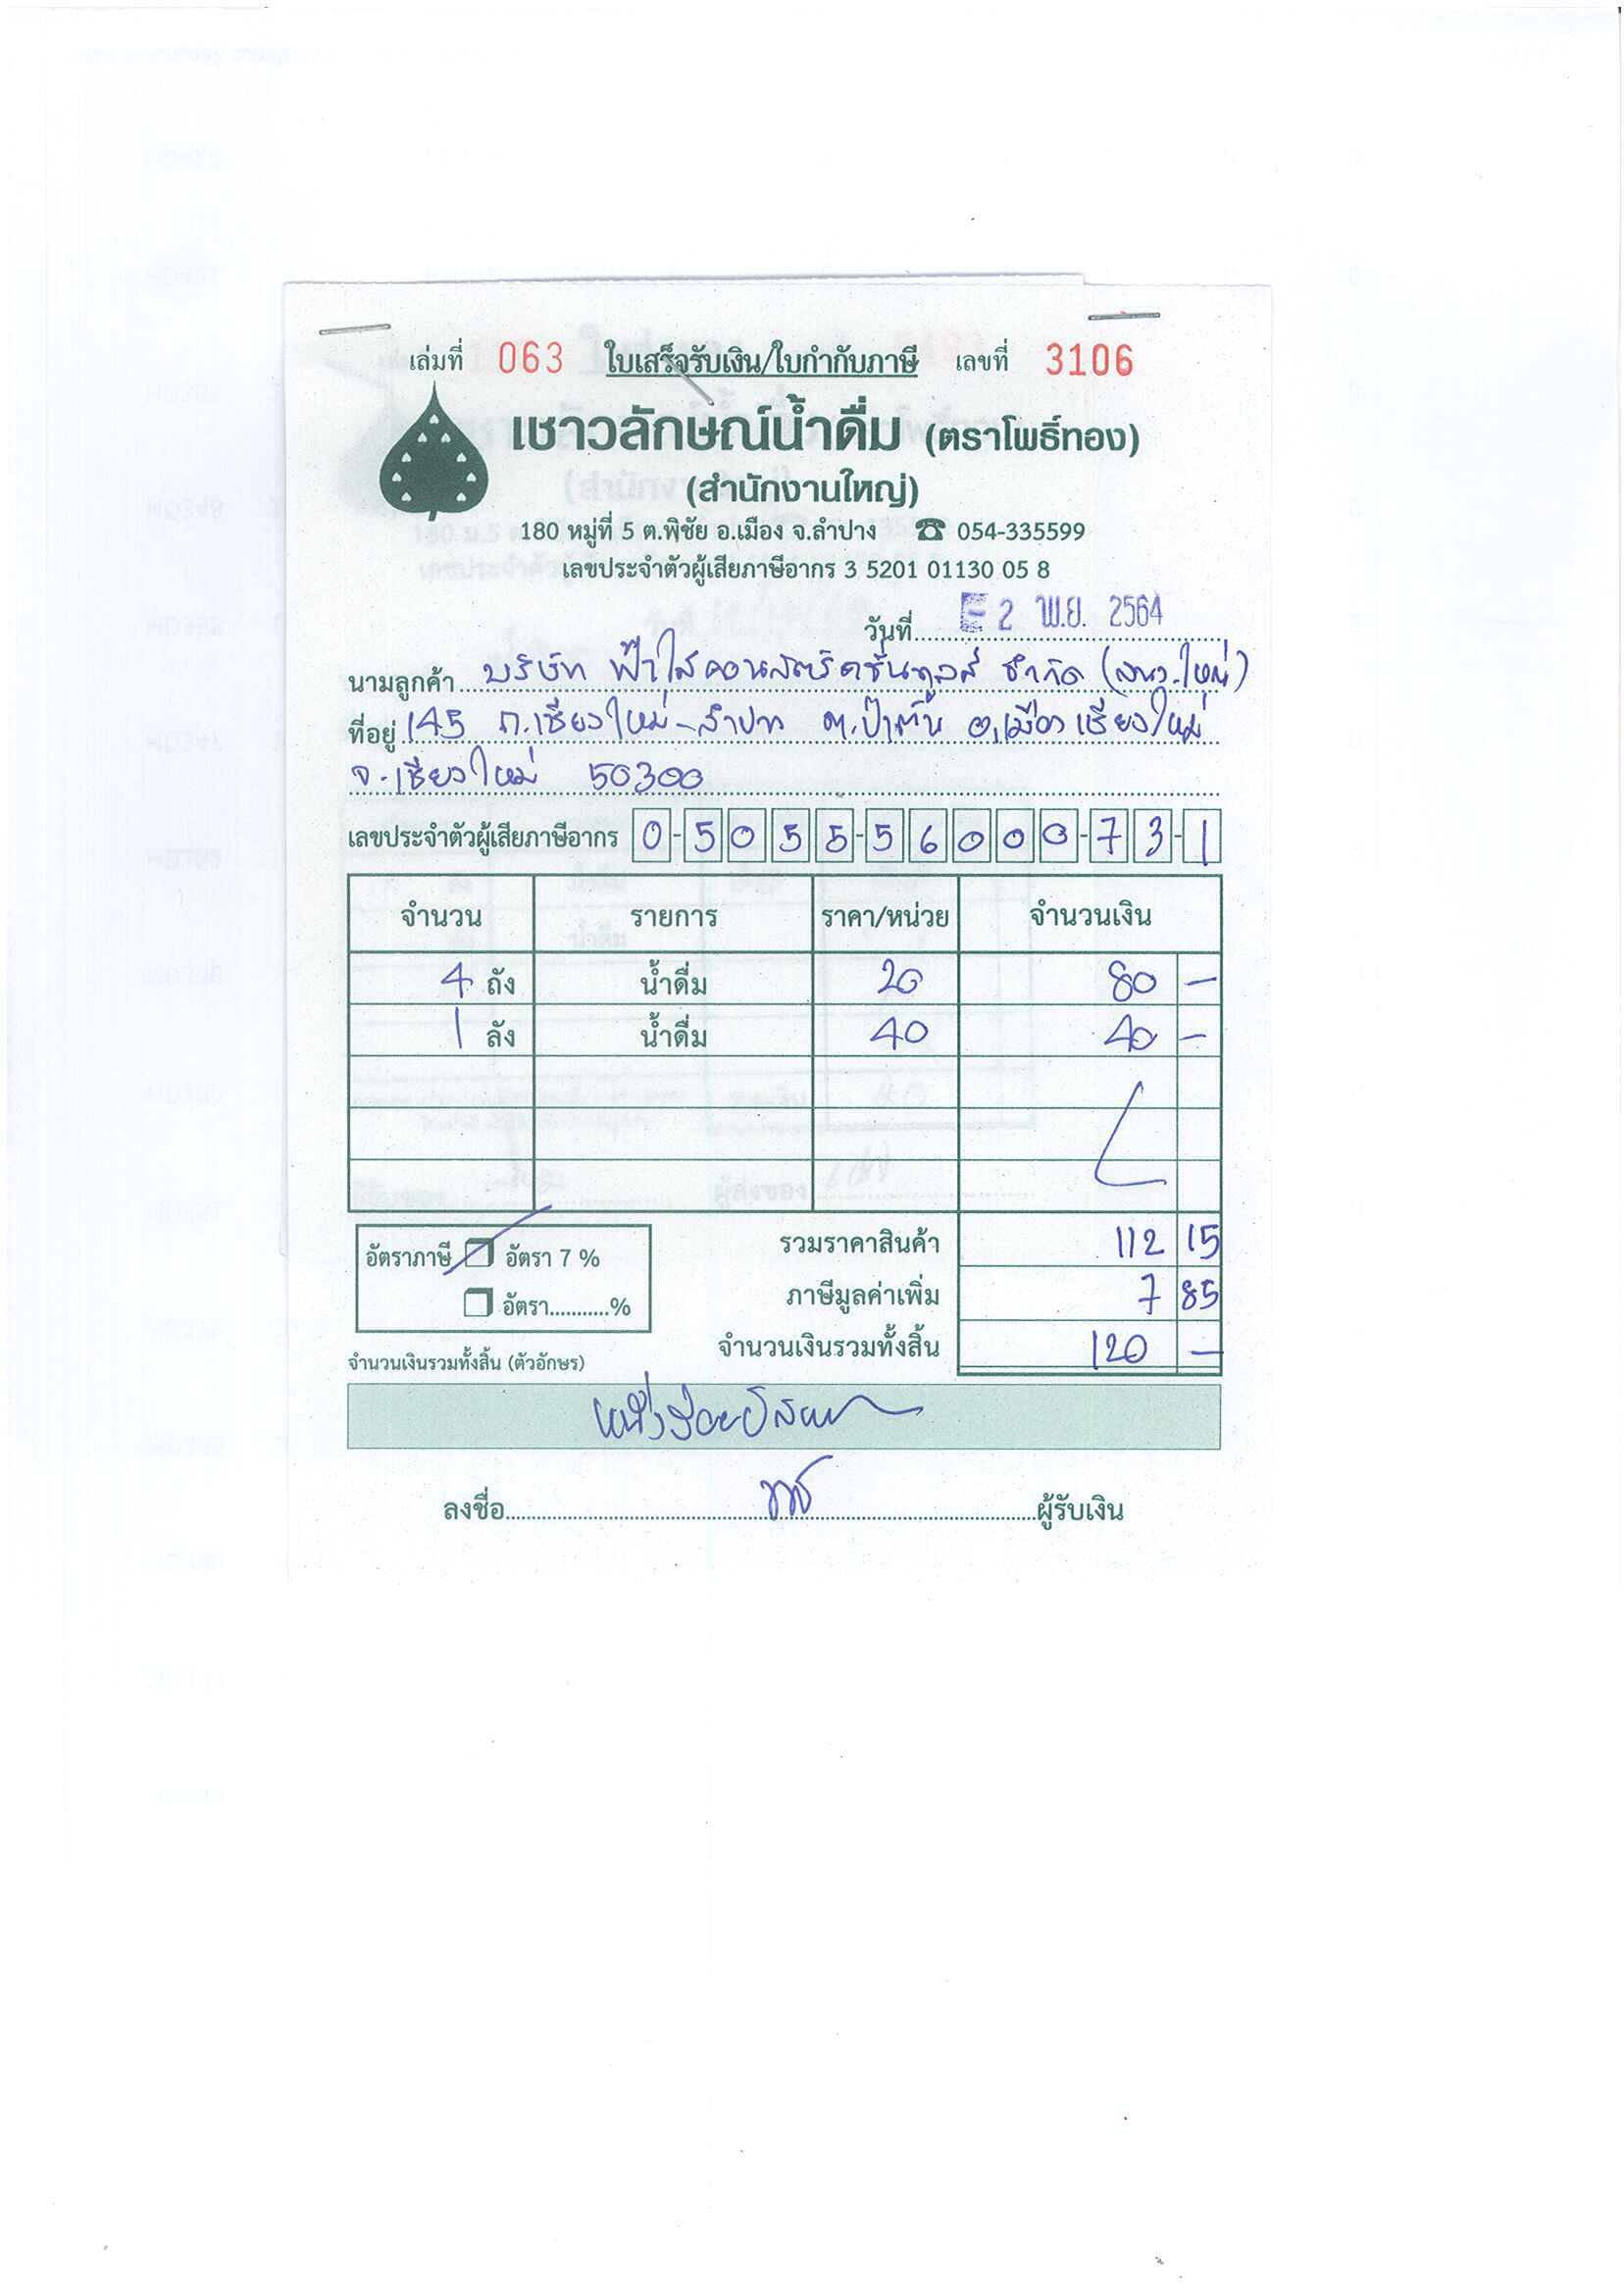 เล่มที่ 063 ใบเสร็จรับเงิน/ใบกำกับภาษี เลขที่ 3106
เชาวลักษณ์น้ำดื่ม (ตราโพธิ์ทอง)
(สำนักงานใหญ่)
180 หมู่ที่ 5 ต.พิชัย อ.เมือง จ.ลำปาง ☎ 054-335599
เลขประจำตัวผู้เสียภาษีอากร 3 5201 01130 05 8
วันที่ 2 พ.ย. 2564
นามลูกค้า บริษัท ฟ้าใสคอนสตรัคชั่นทูลส์ จำกัด (สนง.ใหญ่)
ที่อยู่ 145 ถ.เชียงใหม่-ลำปาง ต.ป่าตัน อ.เมืองเชียงใหม่
จ.เชียงใหม่ 50300
เลขประจำตัวผู้เสียภาษีอากร 0-5055-56000-73-1
จำนวน รายการ ราคา/หน่วย จำนวนเงิน
4 ถัง น้ำดื่ม 20 80 -
1 ลัง น้ำดื่ม 40 40 -
รวมราคาสินค้า 112 15
อัตราภาษี อัตรา 7 %
ภาษีมูลค่าเพิ่ม 7 85
อัตรา...........%
จำนวนเงินรวมทั้งสิ้น 120 -
จำนวนเงินรวมทั้งสิ้น (ตัวอักษร)
หนึ่งร้อยยี่สิบบาท
ลงชื่อ ผู้รับเงิน